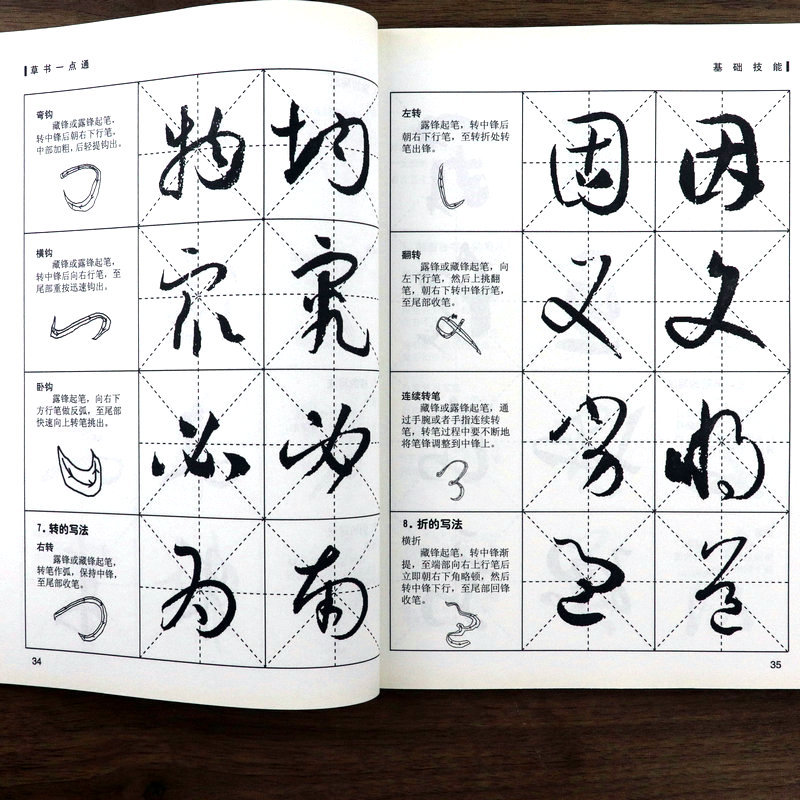 草书一点通
弯钩
藏锋或露锋起笔，
转中锋后朝右下行笔，
中部加粗，后轻提钩出。
物
均
横钩
藏锋或露锋起笔，
转中锋后向右行笔，至
尾部重按迅速钩出。
卧钩
露锋起笔，向右下
方行笔做反弧，至尾部
快速向上转笔挑出。
必
7．转的写法
右转
露锋或藏锋起笔，
转笔作弧，保持中锋，
至尾部收笔。
为
南
34
基础技能
左转
露锋起笔，转中锋后
朝右下行笔，至转折处转
笔出锋。
固
因
翻转
露锋或藏锋起笔，向
左下行笔，然后上挑翻
笔，朝右下转中锋行笔，
至尾部收笔。
文
连续转笔
藏锋或露锋起笔，通
过手腕或者手指连续转
笔，转笔过程中要不断地
将笔锋调整到中锋上。
8．折的写法
横折
藏锋起笔，转中锋渐
提，至端部向右上行笔后
立即朝右下角略顿，然后
转中锋下行，至尾部回锋
收笔。
35